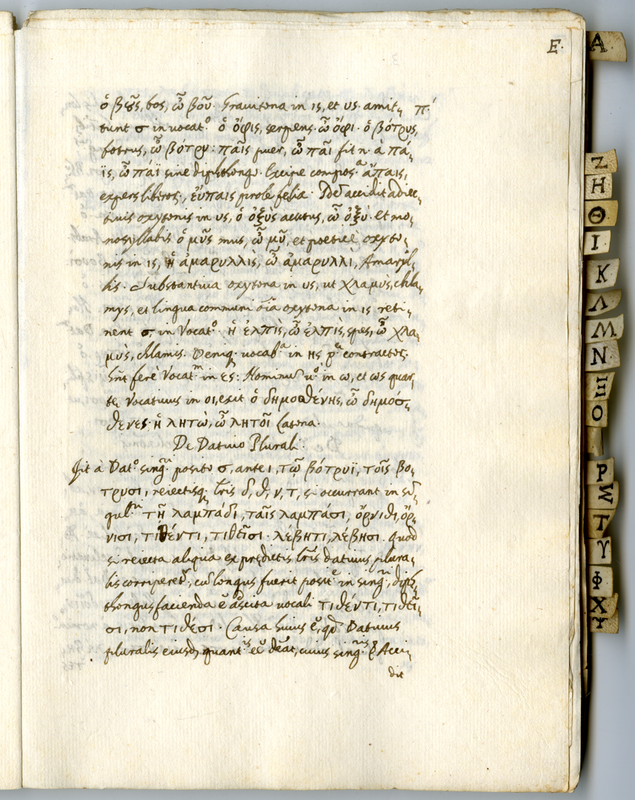 E.
ὁ βοῦς, bos, ὦ βοῦ. Gravitona in is, et us. amit-
tunt σ in vocat.º ὁ ὄφις, serpens. ὦ ὄφι. ὁ βότρυς,
botrus, ὦ βότρυ. παῖς puer, ὦ παῖ fit n. à πά-
ϊς, ὦ πάϊ sine diphthongo. Excipe compos.ª ἄπαις,
expers liberos, εὔπαις prole felix. Id accidit adiec-
tivis oxytonis in us, ὁ ὀξὺς acutus, ὦ ὀξύ. et mo-
nosyllabis ὁ μῦς mus, ὦ μῦ, et poeticè oxyto-
nis in is, ἡ ἀμαρυλλὶς, ὦ ἀμαρυλλὶ, Amaryl-
lis. Substantiva oxytona in us, ut χλαμὺς, chla-
mys, et lingua communi oĩa oxytona in is reti-
nent σ in Vocat.º ἡ ἐλπὶς, ὦ ἐλπὶς, spes, ὦ χλα-
μὺς, chlamis. Deniq. vocab.ª in ης pª contractos.
ferè Vocat. in ες. Nominũ in ω, et ως quar-
tę, Vocativus in οι, exit ὁ δημοσθένης, ὦ δημόσ-
θενες. ἡ λητὼ, ὦ λητοῖ Latona.
De Dativo Plurali.
Fit à Dat.º sing. posito σ, ante ι, τῷ βότρυϊ, τοῖς βό-
τρυσι, reiectisq. lris δ, θ, ν, τ, si occurrant in
τῇ λαμπάδι, ταῖς λαμπάσι, ὄρνιθι, ὄρ-
νισι, τιθέντι, τιθεῖσι. λέβητι, λέβησι. quod
si reiecta aliqua ex predictis lris dativus plura-
lis corriperet, cũ longus fuerit posit. in sing. diph-
thongus facienda ẽ ascita vocali τιθέντι, τιθεῖ-
σι, non τιθέσι. Causa huius ẽ, qd Dativus
pluralis eiusd. quant. debeat, cuius sing. Acci-
dit
Α
Ζ
Η
Θ
Ι
Κ
Λ
Μ
Ν
Ξ
Ο
Ρ
Σ
Τ
Υ
Φ
Χ
Ψ